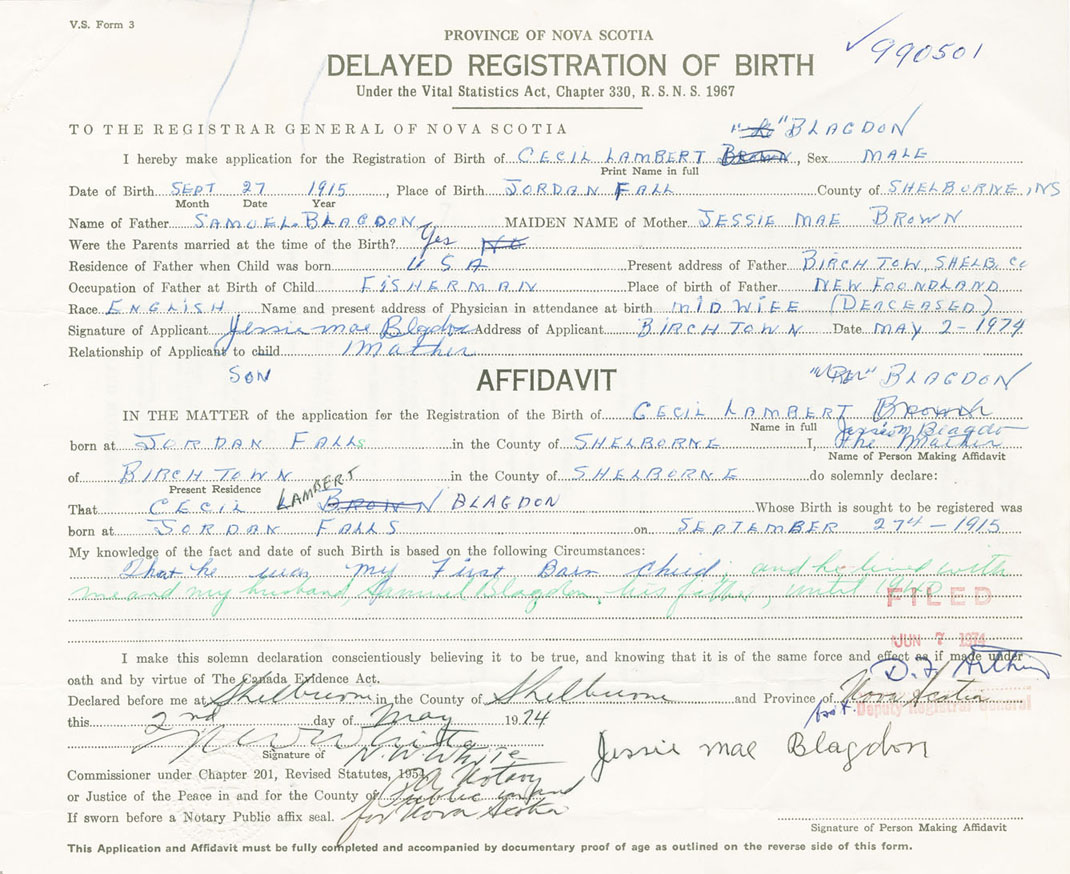 V.S. Form 3
PROVINCE OF NOVA SCOTIA
✓990501
DELAYED REGISTRATION OF BIRTH
Under the Vital Statistics Act, Chapter 330, R.S.N.S. 1967
TO THE REGISTRAR GENERAL OF NOVA SCOTIA
BLAGDON
I hereby make application for the Registration of Birth of CECIL LAMBERT BROWN, Sex MALE
Print Name in full
Date of Birth SEPT 27 1915, Place of Birth JORDAN FALL County of SHELBORNE, NS
Month Date Year
Name of Father SAMUEL BLAGDON MAIDEN NAME of Mother JESSIE MAE BROWN
Were the Parents married at the time of the Birth? Yes No
Residence of Father when Child was born USA Present address of Father BIRCH TOWN, SHELB. Co
Occupation of Father at Birth of Child FISHERMAN Place of birth of Father NEW FOUNDLAND
Race ENGLISH Name and present address of Physician in attendance at birth MID WIFE (DEACEASED)
Signature of Applicant Jessie mae Blagdon Address of Applicant BIRCH TOWN Date MAY 2-1974
Relationship of Applicant to child Mather
SON
AFFIDAVIT
BLAGDON
IN THE MATTER of the application for the Registration of the Birth of CECIL LAMBERT Brown
Name in full
born at JORDAN FALLs in the County of SHELBORNE I, Jessie m Blagdon the Mather
Name of Person Making Affidavit
of BIRCH TOWN in the County of SHELBORNE do solemnly declare:
Present Residence
LAMBERT
That CECIL BROWN BLAGDON Whose Birth is sought to be registered was
born at JORDAN FALLS on SEPTEMBER 27th - 1915
My knowledge of the fact and date of such Birth is based on the following Circumstances:
That he was my First Barn Child; and he lived with
me and my husband, Samuel Blagdon, his father, until 1940
FILED
JUN 7 1974
I make this solemn declaration conscientiously believing it to be true, and knowing that it is of the same force and effect as if made under
oath and by virtue of The Canada Evidence Act.
D. F. Arthur
Declared before me at Shelburne in the County of Shelburne and Province of Nova Scotia
Deputy Registrar General
this 2nd day of May 1974
N W White
Signature of N.W. White
Jessie mae Blagdon
Commissioner under Chapter 201, Revised Statutes, 1954
or Justice of the Peace in and for the County of
A Notary
Public in and
for Nova Scotia
If sworn before a Notary Public affix seal.
Signature of Person Making Affidavit
This Application and Affidavit must be fully completed and accompanied by documentary proof of age as outlined on the reverse side of this form.